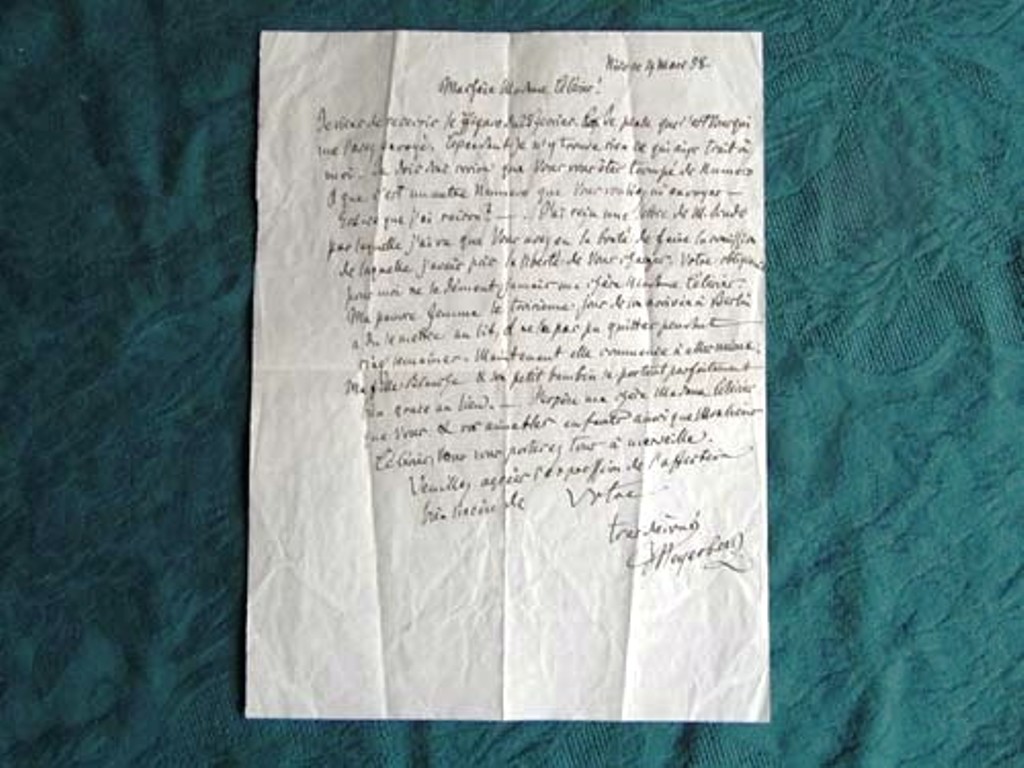 Nice ce 4 Mars 58.
Ma chère Madame
Je viens de recevoir le Figaro du 28 février. Je pense que c'est Vous qui
me l'avez envoyé. Cependant je n'y trouve rien ce qui aye trait à
moi. Je dois donc croire que Vous vous êtes trompé de Numero
& que c'est un autre Numero que Vous vouliez m'envoyer —
Est-ce que j'ai raison? — . J'ai reçu une lettre de M.
par laquelle j'ai vu que Vous avez eu la bonté de faire la commission
de laquelle j'avais pris la liberté de Vous charger. Votre
pour moi ne se dément jamais ma chère Madame
Ma pauvre femme le troisième jour de son arrivée à Berlin
a du se mettre au lit, & ne l'a pas pu quitter pendant
cinq semaines. Maintenant elle commence à aller mieux.
Ma fille Blanche & son petit bambin se portent parfaitement
bien grace au Ciel. — J'espère ma chère Madame
que Vous & vos aimables enfants ainsi que Monsieur
Vous vous portez tous à merveille.
Veuillez agréer l'expression de l'affection
bien sincère de Votre
très dévoué
Meyerbeer